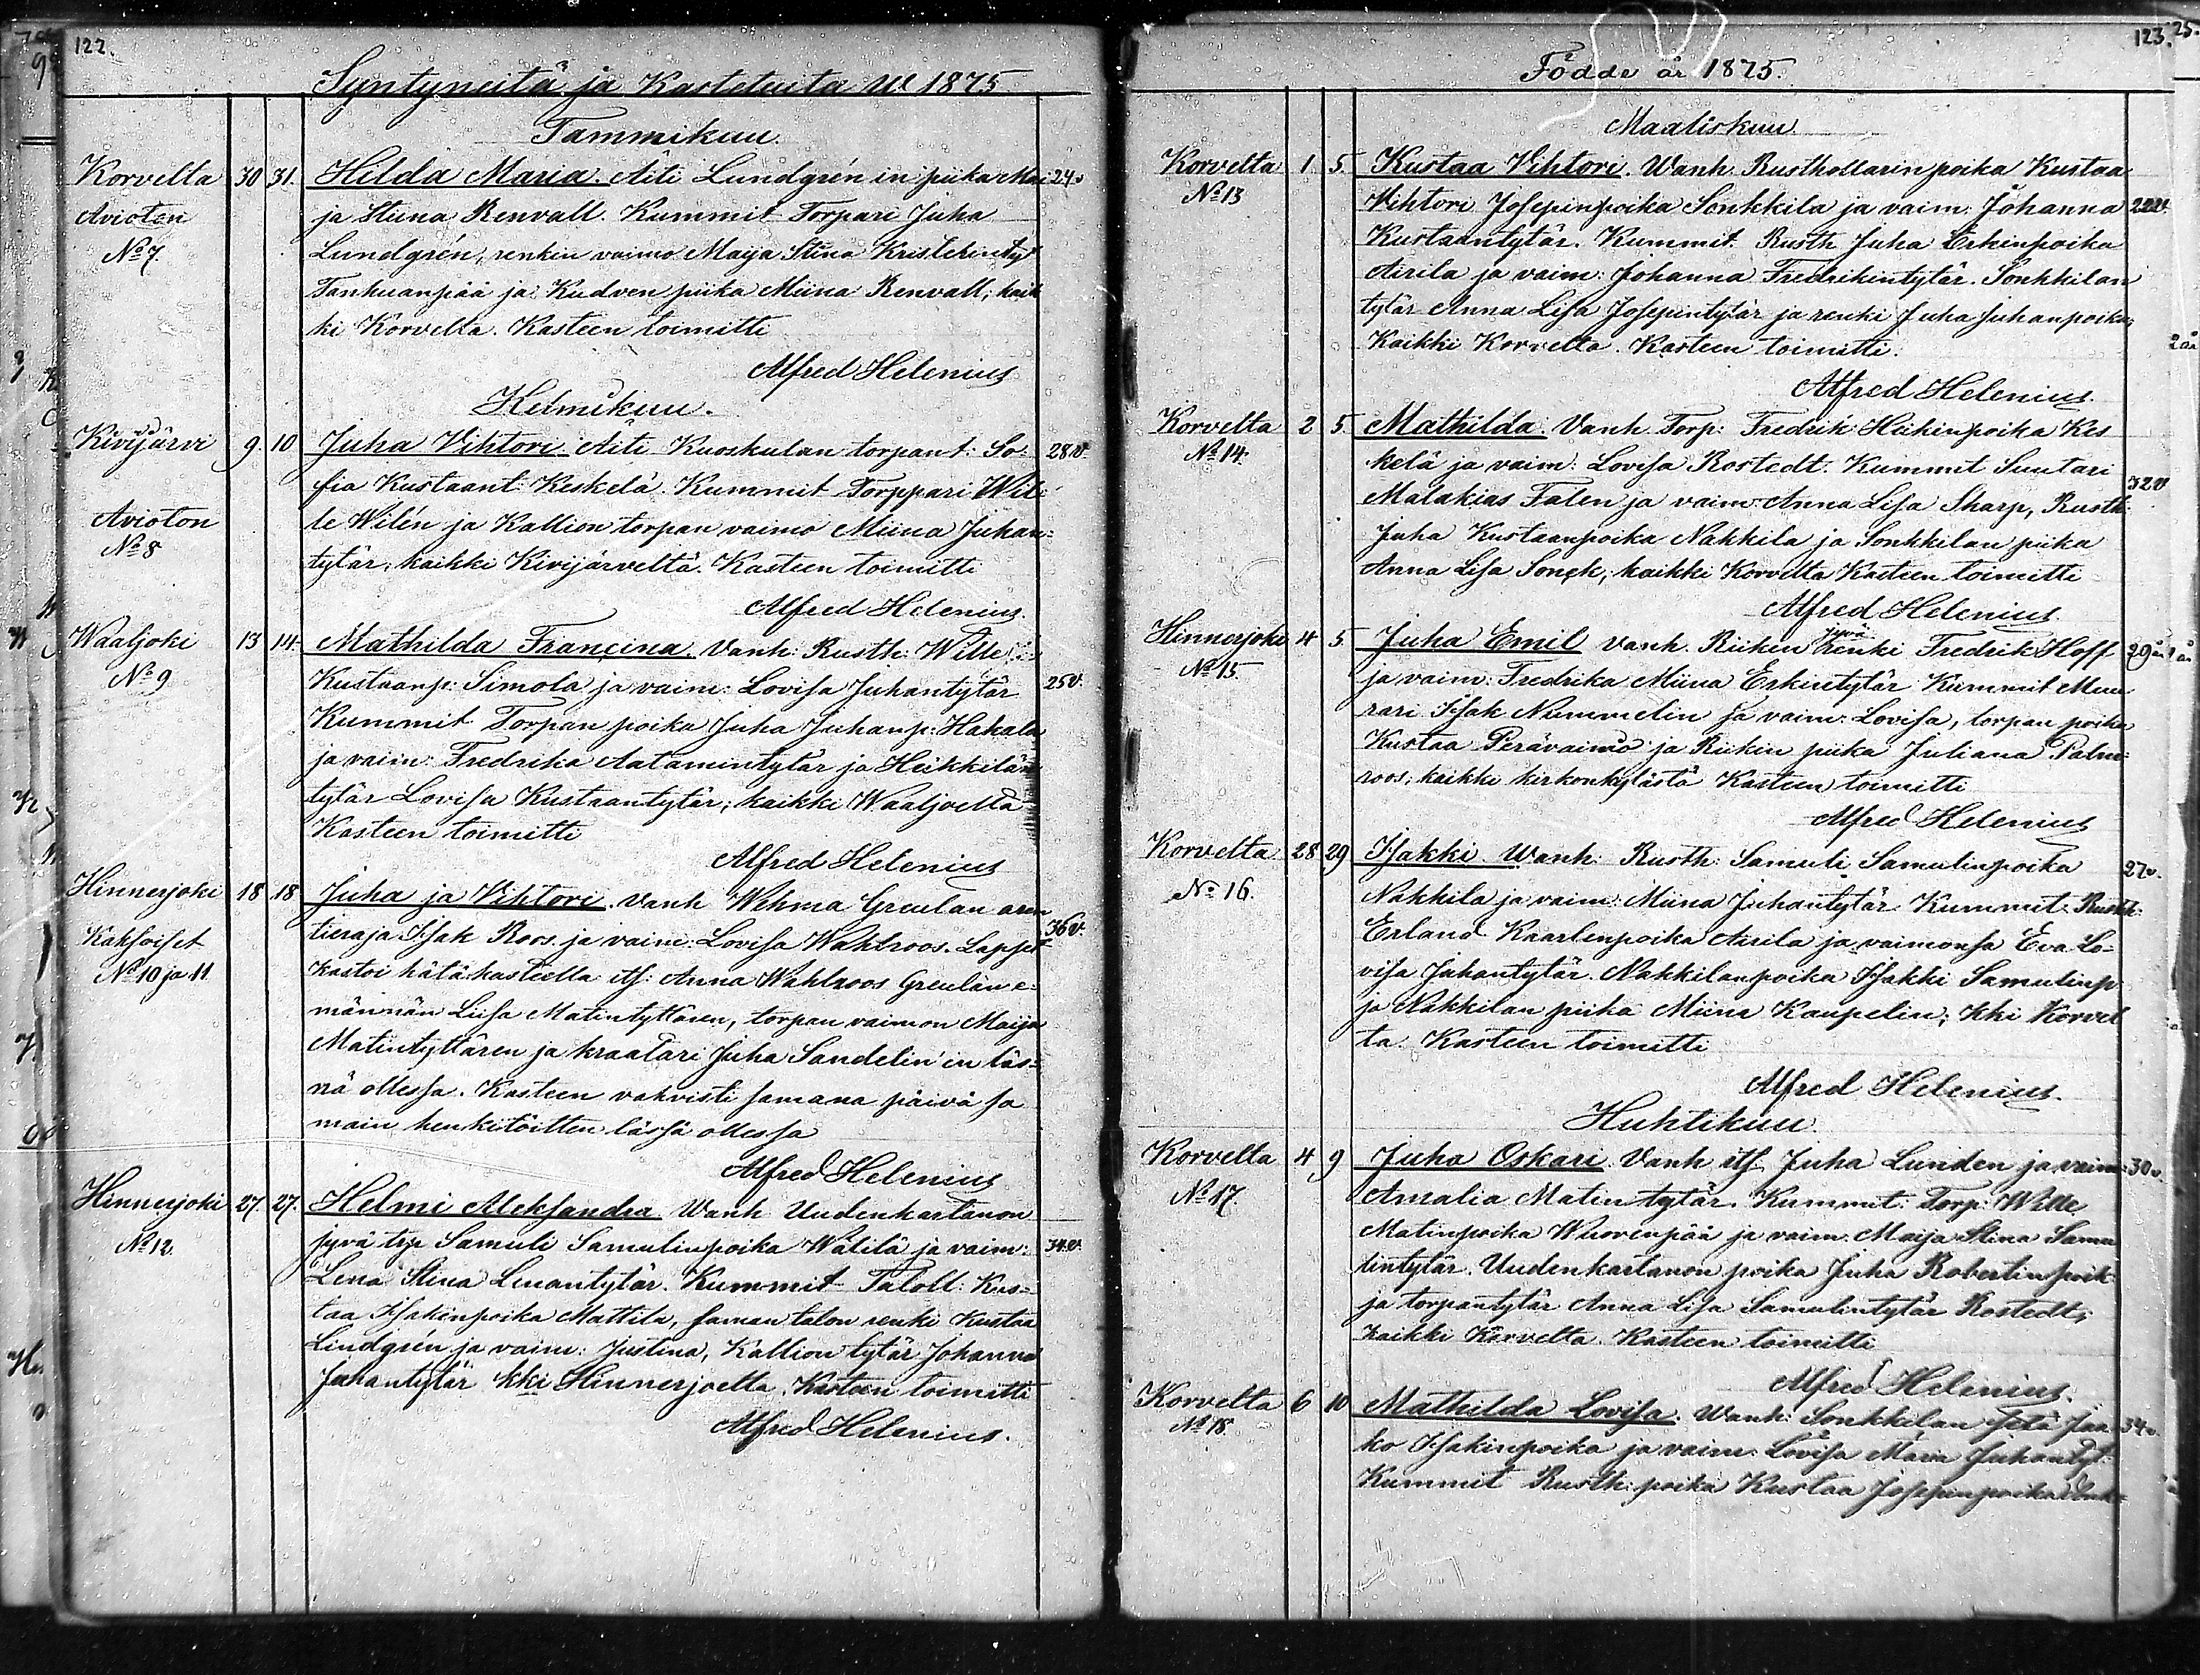 122.
Syntyneitä ja Kastetuita W 1875
Tammikuu.
Korvelta 30 31. Hilda Maria. Äiti Lundgrén in piika Mai 24 v
Avioton ja Stiina Renvall. Kummit Torpari Juha
No 7. Lundgrén, renkin vaimo Maija Stina Kristerintyt
Tanhuanpää ja Kudven piika Miina Renvall; kaik
ki Korvelta. Kasteen toimitti
Alfred Helenius
Helmikuu.
Kivijärvi 9. 10 Juha Vihtori Äiti Kuoskulan torpant: So- 28 v.
fia Kustaant: Keskelä. Kummit Torppari Wil-
Avioton le Wilén ja Kallion torpan vaimo Miina Juhan-
No 8 tytär, kaikki Kivijärveltä. Kasteen toimitti
Alfred Helenius.
Waaljoki 13 14. Mathilda Francina. Vanh: Rusth: Wille
No 9 Kustaanp: Simola ja vaim: Lovisa Juhantytär 25 v.
Kummit Torpan poika Juha Juhanp: Hakala
ja vaim: Fredrika Aatamintytär ja Heikkilän
tytär Lovisa Kustaantytär; kaikki Waaljoelta
Kasteen toimitti
Alfred Helenius
Hinnerjoki 18 18 Juha ja Vihtori. Vanh Wehma Greulan aren
Kaksoiset tieraja Isak Roos ja vaim: Lovisa Wahlroos. Lapset 36 v.
No 10 ja 11. Kastoi hätäkasteella its: Anna Wahlroos Greulan e-
männän Liisa Matintyttären, torpan vaimon Maija
Matintyttären ja kraatari Juha Sandelin'en läs-
nä ollessa. Kasteen vahvisti samana päivä sa
main henkilöitten läsnä ollessa
Alfred Helenius
Hinnerjoki 27. 27. Helmi Aleksandra Wanh Uudenkartanon
No 12. jyvä trp Samuli Samulinpoika Wälilä ja vaim: 34 v.
Lena Stina Leenantytär. Kummit Taloll: Kus-
taa Isakinpoika Mattila, saman talon renki Kustaa
Lindgrén ja vaim: Justina, Kallion tytär Johanna
Juhantytär kki Hinnerjoelta. Kasteen toimitti
Alfred Helenius.
123.
Födde år 1875.
Maaliskuu
Korvelta 1. 5. Kustaa Vihtori. Wanh. Rusthollarin poika Kustaa
No 13 Vihtori Josepinpoika Sonkkila ja vaim: Johanna 22 v.
Kustaantytär. Kummit: Rusth Juha Erkinpoika
Airila ja vaim: Johanna Fredrikintytär. Sonkkilan
tytär Anna Lisa Josepintytär ja renki Juha Juhanpoika,
Kaikki Korvelta. Kasteen toimitti.
Alfred Helenius.
Korvelta 2 5. Mathilda. Vanh. Torp: Fredrik Heikinpoika Kes
No 14. kelä ja vaim: Lovisa Rostedt. Kummit Suutari
Malakias Falen ja vaim: Anna Lisa Skarp, Rusth: 32 v
Juha Kustaanpoika Nakkila ja Sonkkilan piika
Anna Lisa Sonck; kaikki Korvelta Kasteen toimitti
Alfred Helenius.
Hinnerjoki 4 5. Juha Emil vanh. Riiken jyvä renki Fredrik Hoff 29 år
No 15. ja vaim: Fredrika Miina Erkintytär Kummit Muu
rari Isak Nummelin ja vaim: Lovisa, torpan poika
Kustaa Perävainio ja Riikin piika Juliana Palm-
roos, kaikki kirkonkylästä Kasteen toimitti
Alfred Helenius
Korvelta 28 29 Isakki. Wanh: Rusth: Samuli Samulinpoika 27 v.
No 16. Nakkila ja vaim: Miina Juhantytär Kummit: Rusth:
Erland Kaarlenpoika Airila ja vaimonsa Eva Lo-
visa Juhantytär. Nakkilanpoika Isakki Samulinp
ja Nakkilan piika Miina Kaupelin; kki Korvel
ta. Kasteen toimitti
Alfred Helenius.
Huhtikuu
Korvelta 4 9 Juha Oskari. Vanh its Juha Lunden ja vaim: 30 v.
No 17. Amalia Matin tytär. Kummit: Torp: Wille
Matinpoika Wuorenpää ja vaim. Maija Stina Samu
lintytär. Uudenkartanon poika Juha Robertinpoik
ja torpantytär Anna Lisa Samulintytär Rostedt;
kaikki Korvelta. Kasteen toimitti
Alfred Helenius.
Korvelta 6 10 Mathilda Lovisa. Wanh: Sonkkilan Setä Jaa 34 v.
No 18. ko Isakinpoika ja vaim: Lovisa Maria Juhantyt.
Kummit Rusth: poika Kustaa Josepinpoika